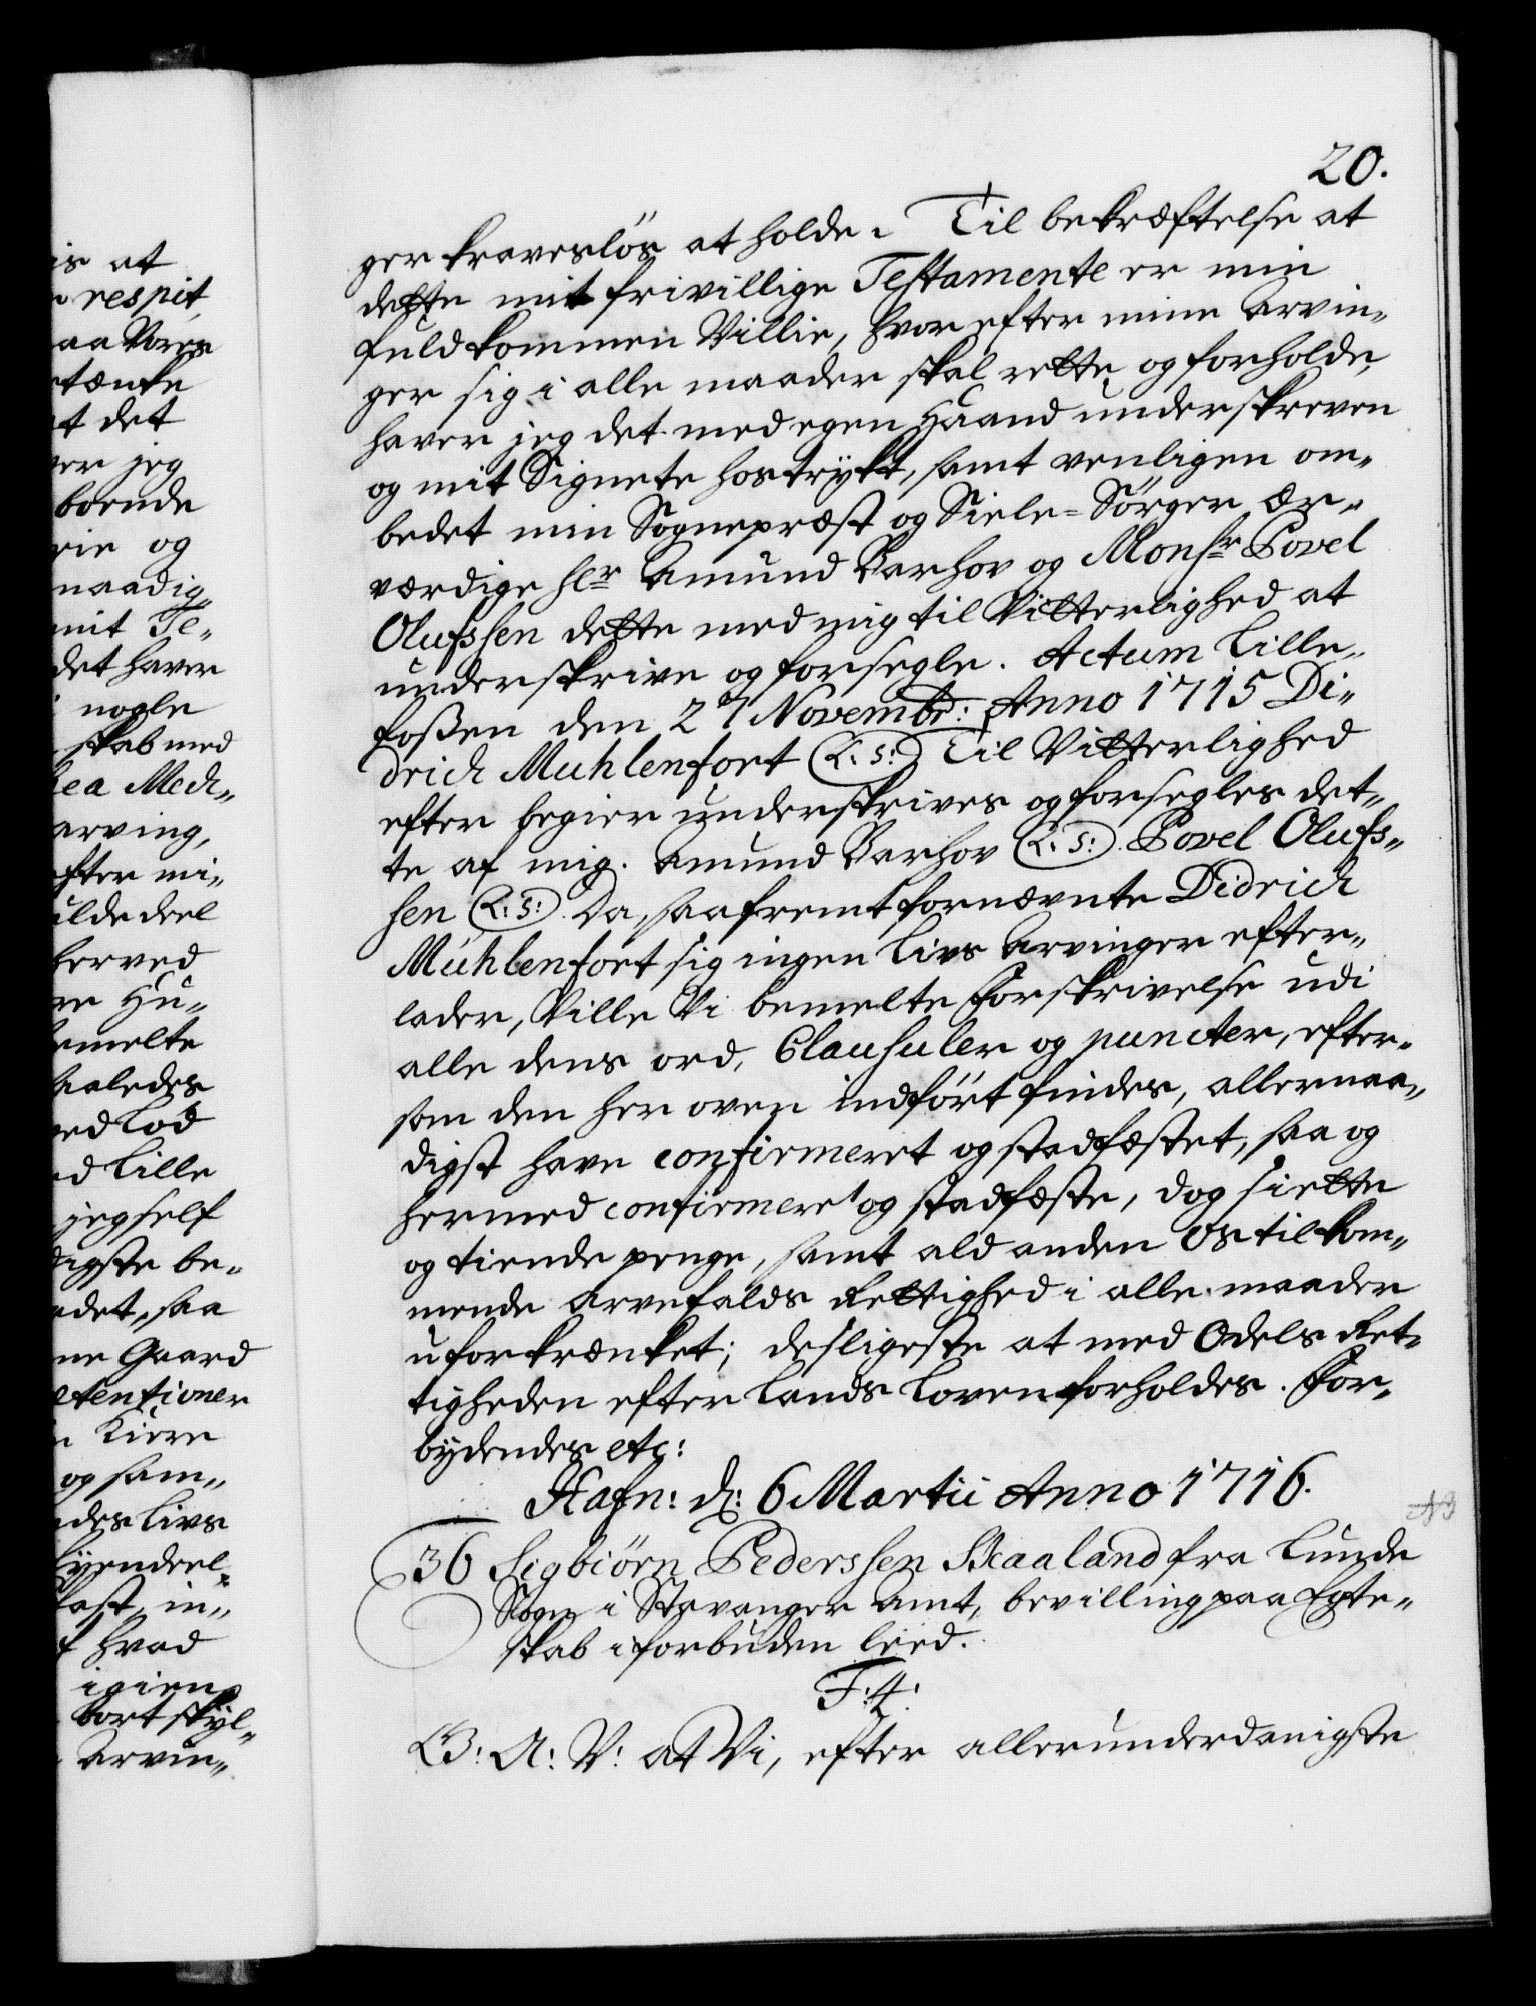 is at
respit,
aa Vores
tænke
t det
ver jeg
boende
rie og
naadig„
mit Te„
det haver
nogle
skab med
ea Med„
arving,
efter mi„
ulde deel
herved
re Hu„
emelte
aaledes
ved Lod
d Lille
jeg self
digste be„
det, saa
ne Gaard
tentioner
Kiere
og sam„
des Livs
in„
f hvad
igien
bort skÿl„
Arvin„
20.
ger kravesløs at holde. Til bekræftelse at
dette mit frivillige Testamente er min
fuldkommen Villie, hvorefter mine Arvin„
ger sig i alle maader skal rette og forholde,
haver jeg det med egen Haand underskreven
og mit Signete hostrykt, samt venligen om„
bedet min Sognepræst og Siele=Sørger Ær„
værdige Hr Amund Barhov og Monsr Povel
Olufssen dette med mig til Vitterlighed at
underskrive og forsegle. Actum Lille„
foßen den 27 Novembr: Anno 1715 Di„
drich Muhlenfort (L: S:) Til Vitterlighed
efter begier underskrives og forsegles det„
te af mig. Amund Barhov (L: S:) Povel Olufs„
sen (L: S:). Da, saafremt fornævnte Didrich
Mühlenfort sig ingen Livs Arvinger efter„
lader, Ville Vi bemelte Forskrivelse udi
alle dens ord, Clausuler og puncter, efter„
som den her oven indført findes, allernaa„
digst have confirmeret og stadfæstet, saa og
hermed confirmere og stadfæste, dog siette
og tiende penge, samt ald anden Os tilkom„
mende Arvefalds Rettighed i alle maader
uforkrænket; desligeste at med Odels Ret„
tigheden efter Lands Loven forholdes. For„
bydendes etc:
Hafn: d: 6 Martii Anno 1716.
36 Sigbiørn Pederssen Skaaland fra Lunde
Sogn i Stavanger Amt, bevilling paa Egte„
skab i forbuden leed.
F: 4:
G: A: V: at Vi, efter allerunderdanigste